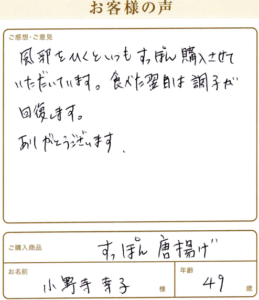 お客様の声
ご感想・ご意見
風邪をひくといつもすっぽん購入させて
いただいています。食べた翌日は調子が
回復します。
ありがとうございます.
ご購入商品
すっぽん 唐揚げ
お名前
小野寺 幸子 様
年齢
49 歳